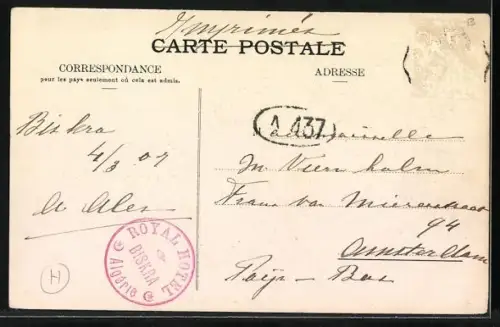 Imprimés
CARTE POSTALE
CORRESPONDANCE
pour les pays seulement où cela est admis.
ADRESSE
Biskra
4/3 07
ROYAL HOTEL
BISKRA
Algérie
H
A 437
Frans van Mierisstraat
94
Amsterdam
Pays-Bas